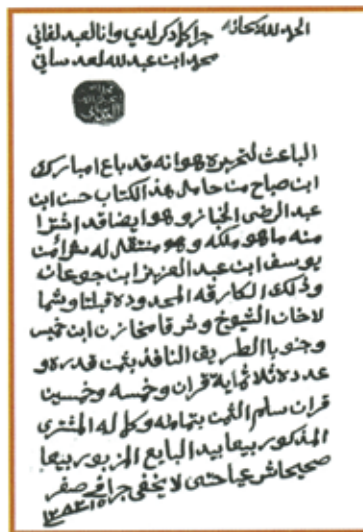 الحمد لله سبحانه
جرا كما ذكر لدي وانا العبد لفاني
محمد ابن عبد لله لعد ساني
الباعث لتحريره هوانه قد باع امبارك
ابن صباح من حامل هذ الكتاب حسن ابن
عبد الرضى الخباز و هو ايضا قد اشترا
منه ما هو ملكه و هو منتقل له شرا من
يوسف ابن عبد العزيز ابن جوعان
وذلك الكارقه المحدوده قبلتا وشما
لا خان الشيوخ وشرقا مخازن ابن خميس
وجنوبا الطريق النافذ بثمن قدره و
عدده ثلاثماية قران وخمسه وخمسين
قران سلم الثمن بتمامه وكماله المشتري
المذكور بيعا بيد البايع المزبور بيعا
صحيحا شرعيا حتى لا يخفى جرا في صفر